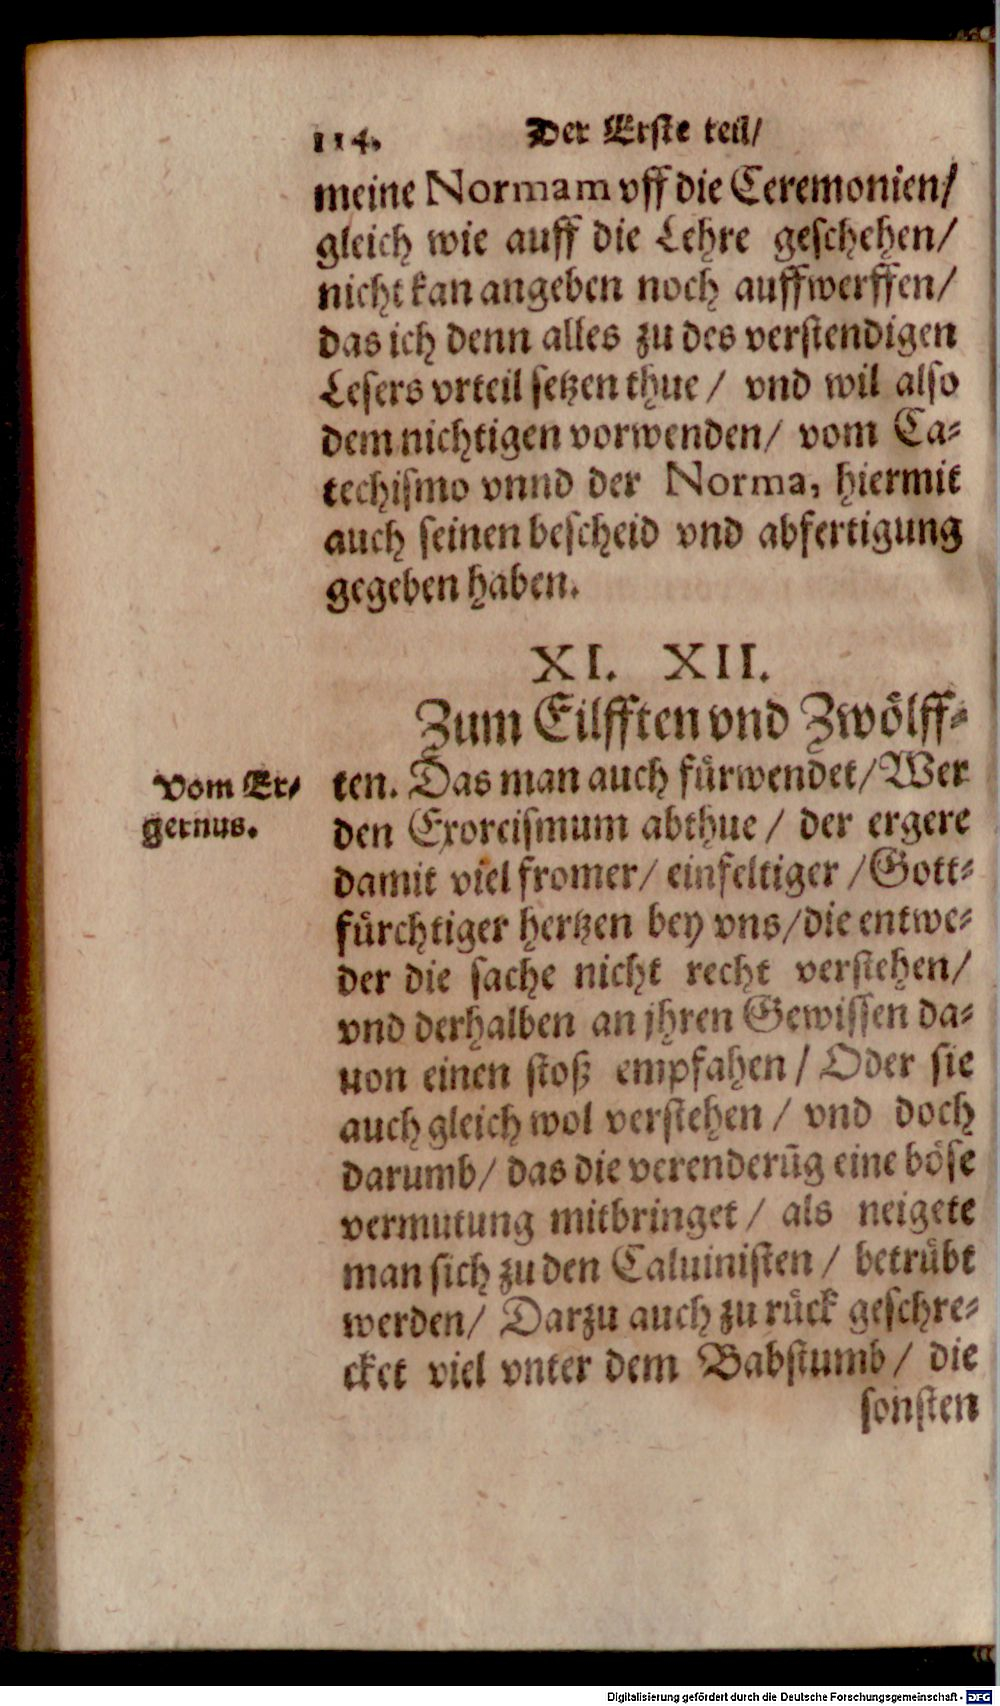 114. Der Erste teil/
meine Normam vff die Ceremonien/
gleich wie auff die Lehre geschehen/
nicht kan angeben noch auffwerffen/
das ich denn alles zu des verstendigen
Lesers vrteil setzen thue / vnd wil also
dem nichtigen vorwenden/ vom Ca-
techismo vnnd der Norma, hiermit
auch seinen bescheid vnd abfertigung
gegeben haben.
XI. XII.
Zum Eilfften vnd Zwölff-
Vom Er-
gernus.
ten. Das man auch fürwendet/ Wer
den Exorcismum abthue / der ergere
damit viel fromer/ einfeltiger /Gott-
fürchtiger hertzen bey vns/die entwe-
der die sache nicht recht verstehen/
vnd derhalben an jhren Gewissen da-
uon einen stoß empfahen / Oder sie
auch gleich wol verstehen / vnd doch
darumb/ das die verenderũg eine böse
vermutung mitbringet / als neigete
man sich zu den Caluinisten / betrübt
werden/ Darzu auch zu rück geschre-
cket viel vnter dem Babstumb / die
sonsten
Digitalisierung gefördert durch die Deutsche Forschungsgemeinschaft - DFG